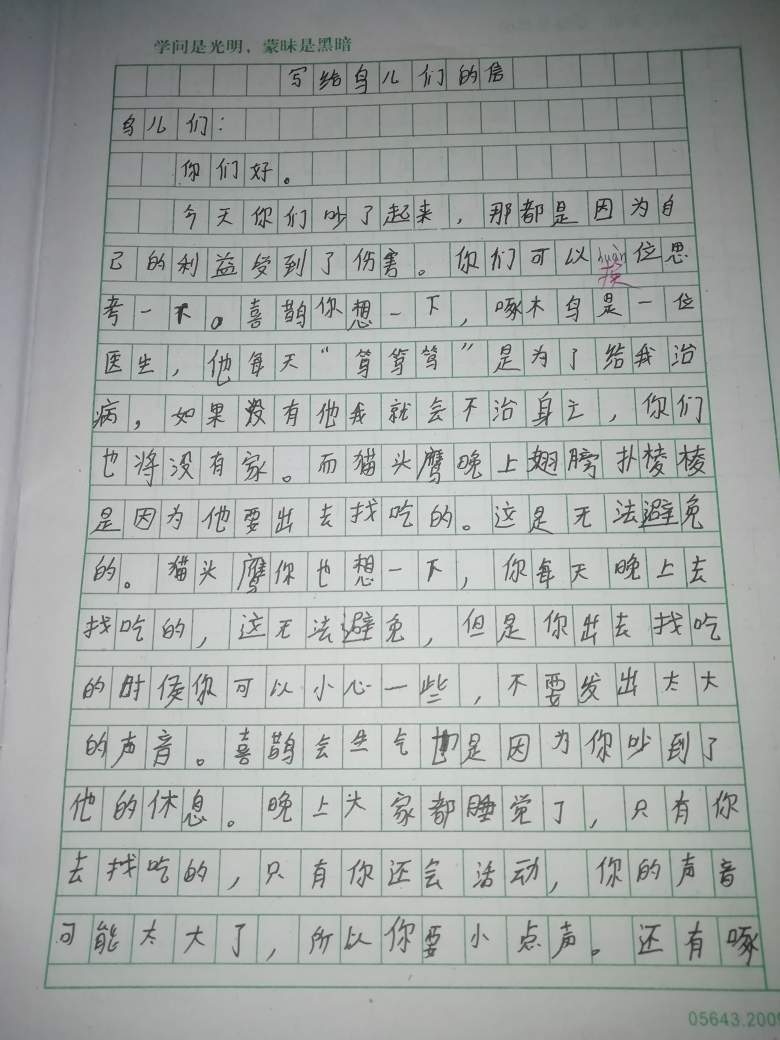 学问是光明，蒙昧是黑暗
写给鸟儿们的信
鸟儿们：
你们好。
今天你们吵了起来，那都是因为自
己的利益受到了伤害。你们可以huàn换位思
考一下。喜鹊你想一下，啄木鸟是一位
医生，他每天“笃笃笃”是为了给我治
病，如果没有他我就会不治身亡，你们
也将没有家。而猫头鹰晚上翅膀扑棱棱
是因为他要出去找吃的。这是无法避免
的。猫头鹰你也想一下，你每天晚上去
找吃的，这无法避免，但是你出去找吃
的时侯你可以小心一些，不要发出太大
的声音。喜鹊会生气也是因为你吵到了
他的休息。晚上大家都睡觉了，只有你
去找吃的，只有你还会活动，你的声音
可能太大了，所以你要小点声。还有啄
05643.2009